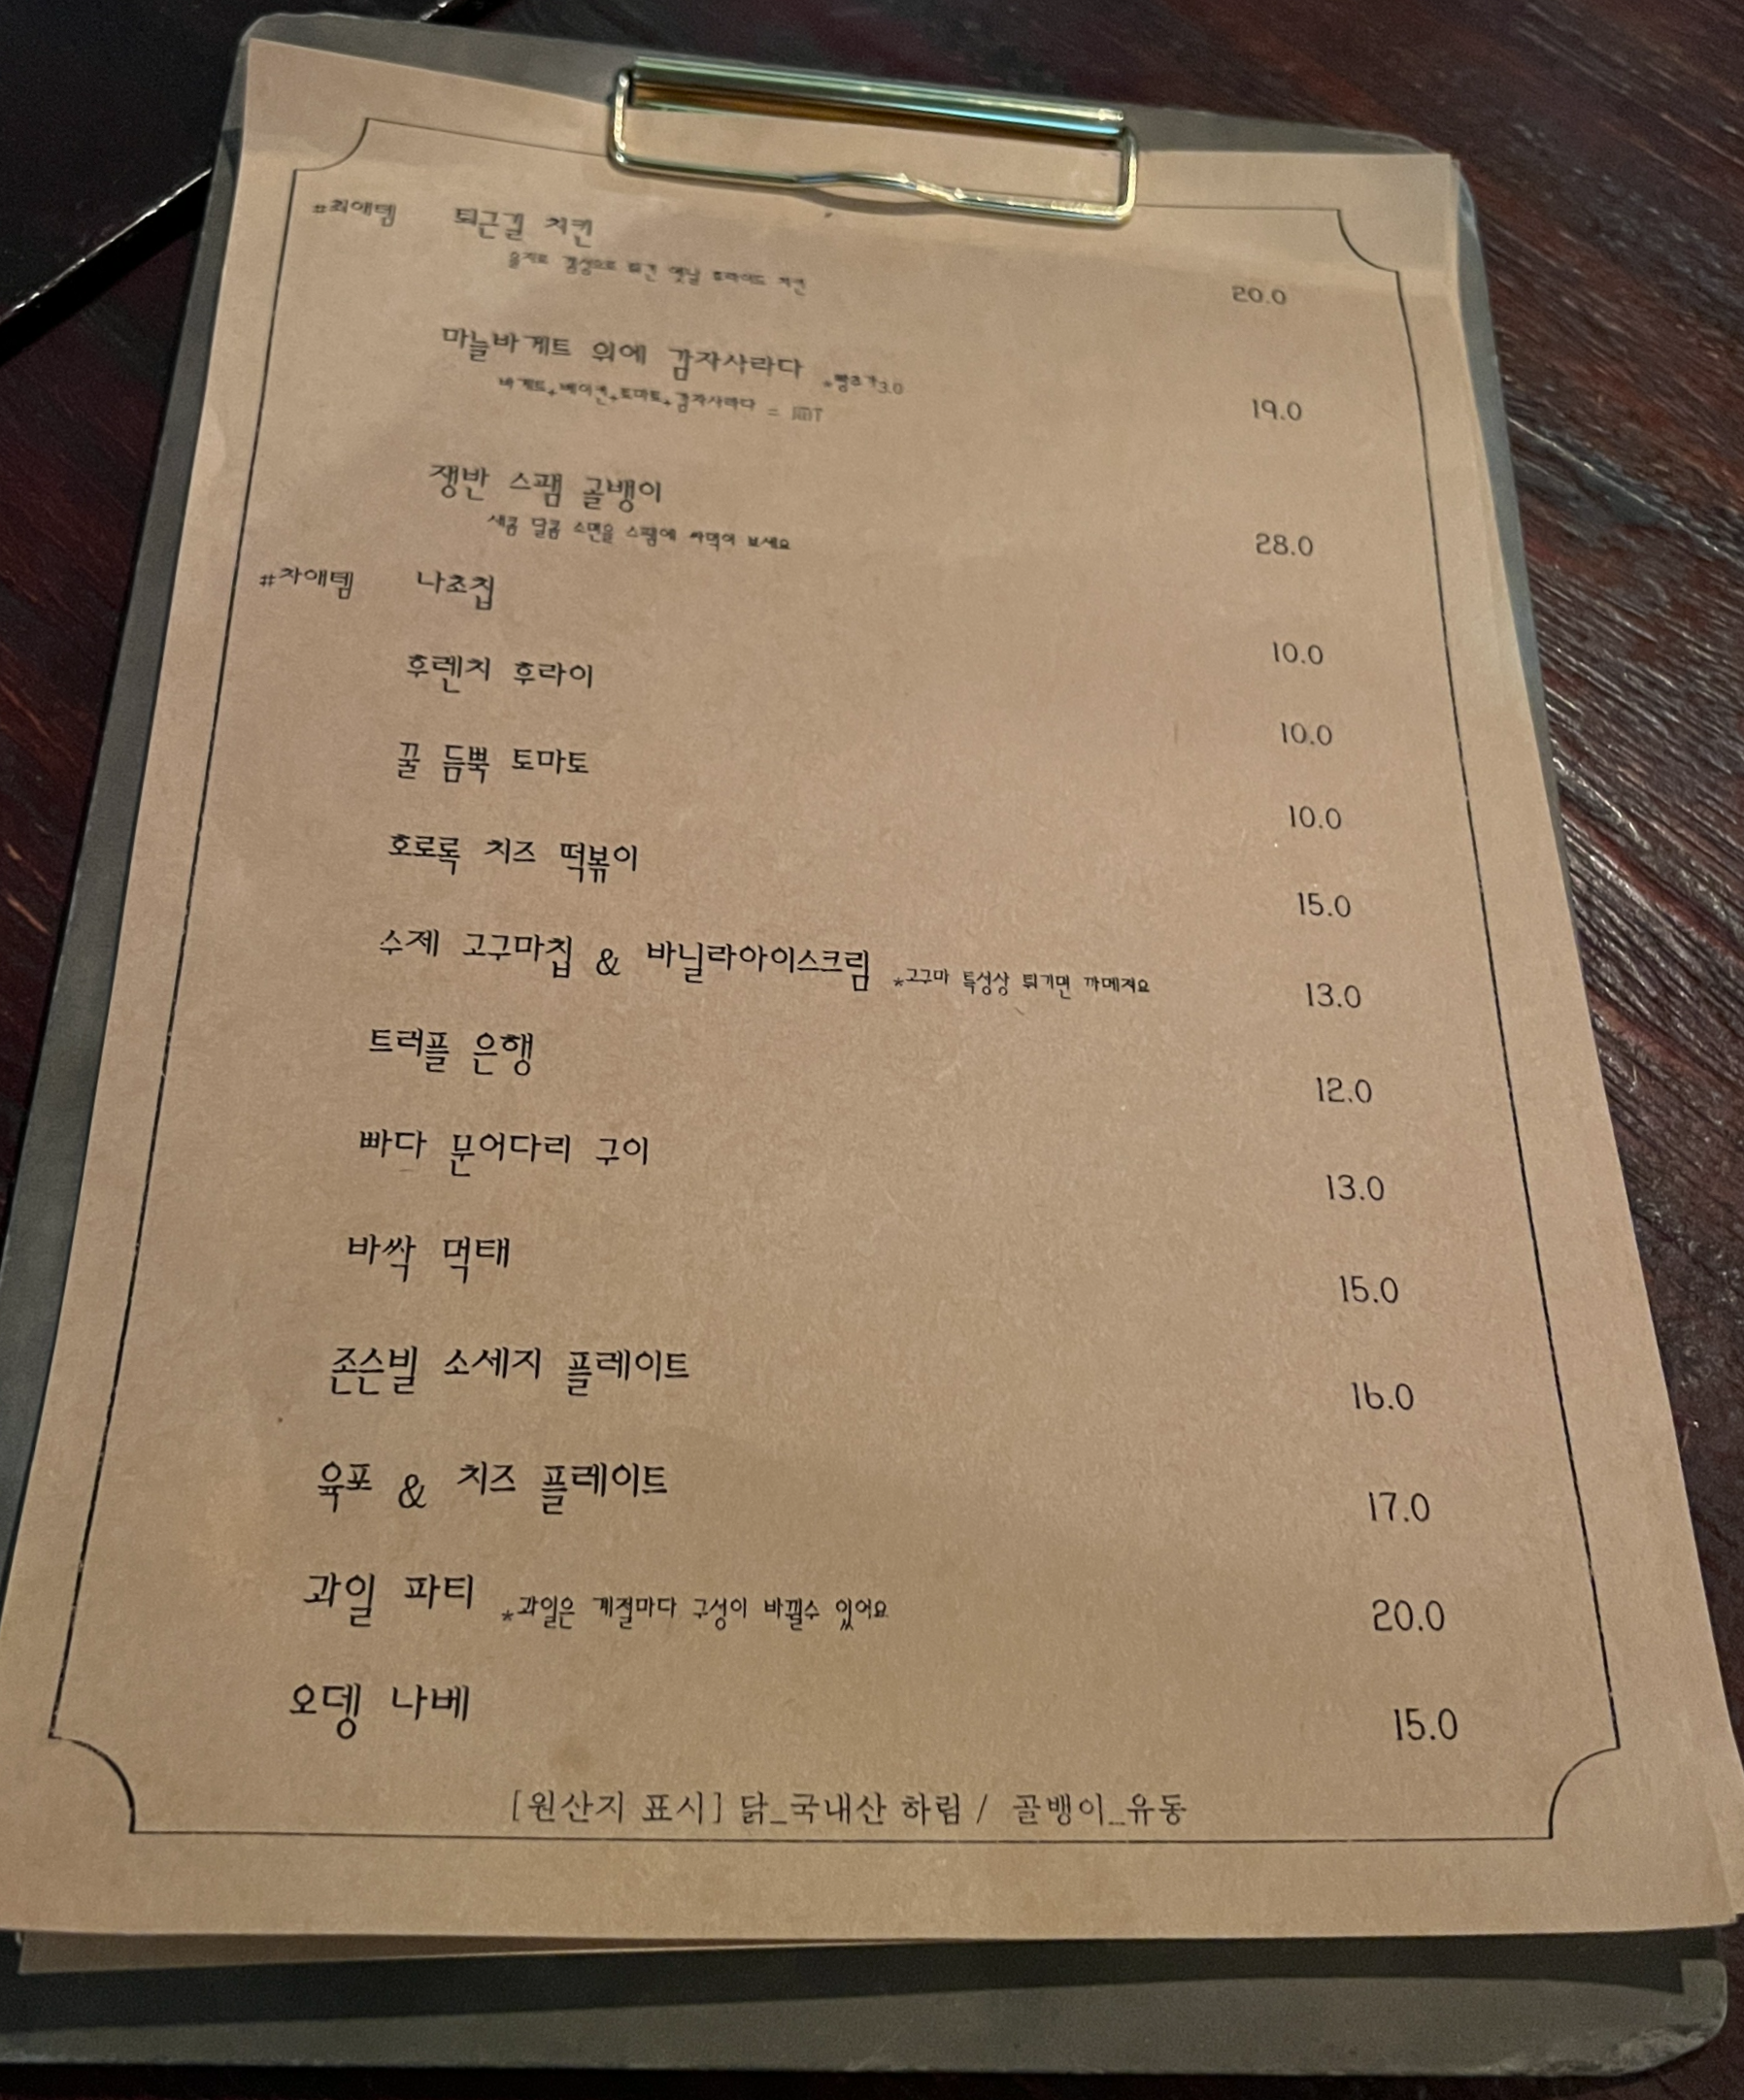 #최애템 퇴근길 치킨
을지로 갬성으로 튀긴 옛날 후라이드 치킨 20.0
마늘바게트 위에 감자사라다 *빵추가3.0
바게트+베이컨+토마토+감자사라다 = JMT 19.0
쟁반 스팸 골뱅이
새콤 달콤 소면을 스팸에 싸먹어 보세요 28.0
#차애템 나초칩 10.0
후렌치 후라이 10.0
꿀 듬뿍 토마토 10.0
호로록 치즈 떡볶이 15.0
수제 고구마칩 & 바닐라아이스크림 *고구마 특성상 튀기면 까메져요 13.0
트러플 은행 12.0
빠다 문어다리 구이 13.0
바싹 먹태 15.0
존슨빌 소세지 플레이트 16.0
육포 & 치즈 플레이트 17.0
과일 파티 *과일은 계절마다 구성이 바뀔수 있어요 20.0
오뎅 나베 15.0
[원산지 표시] 닭_국내산 하림 / 골뱅이_유동